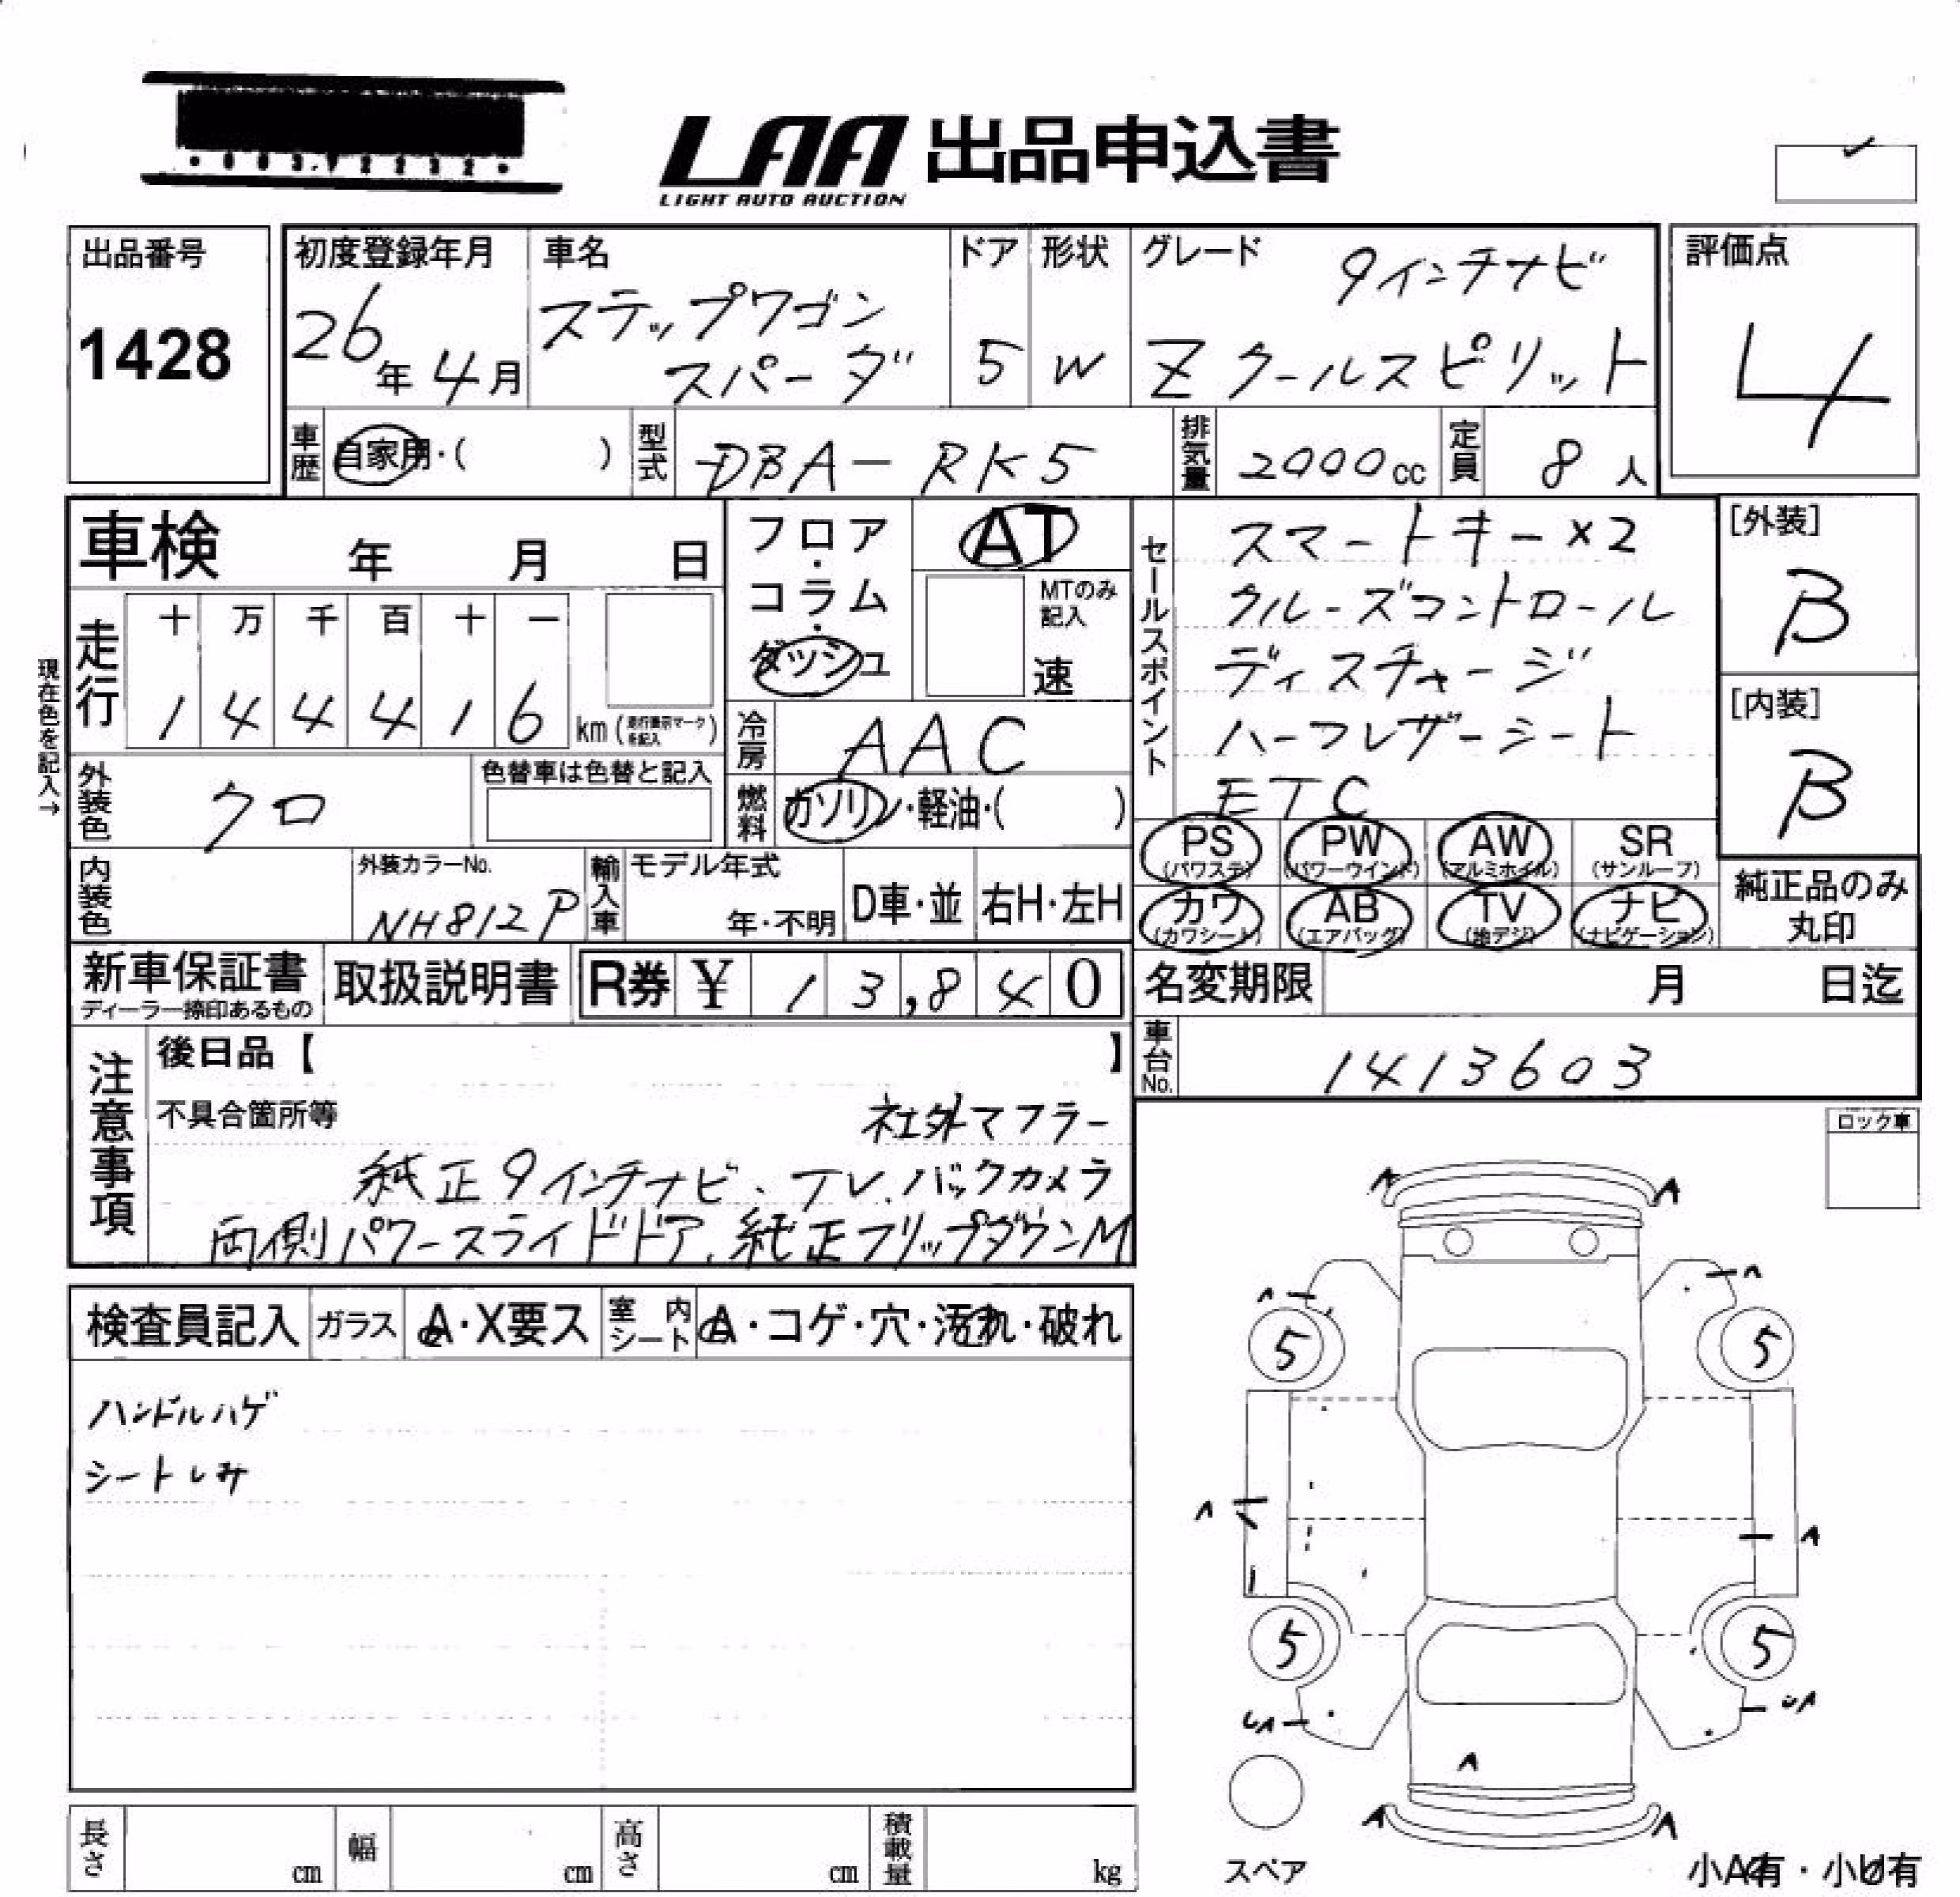 LAA 出品申込書
LIGHT AUTO AUCTION
出品番号
1428
初度登録年月
26年4月
車名
ステップワゴン
スパーダ
ドア
5
形状
W
グレード
9インチナビ
Z クールスピリット
評価点
4
車歴
自家用・( )
型式
DBA-RK5
排気量
2000cc
定員
8人
車検 年 月 日
フロア・
コラム・
ダッシュ
AT
MTのみ
記入
速
セールスポイント
スマートキー×2
クルーズコントロール
ディスチャージ
ハーフレザーシート
ETC
[外装]
B
[内装]
B
現在色を記入→
走行
十 万 千 百 十 一
1 4 4 4 1 6 km (走行表示マークを記入)
冷房
AAC
外装色
クロ
色替車は色替と記入
燃料
ガソリン・軽油・( )
PS
(パワステ)
PW
(パワーウインド)
AW
(アルミホイル)
SR
(サンルーフ)
カワ
(カワシート)
AB
(エアバッグ)
TV
(地デジ)
ナビ
(ナビゲーション)
純正品のみ
丸印
内装色
外装カラーNo.
NH812P
輸入車
モデル年式
年・不明
D車・並
右H・左H
新車保証書
ディーラー捺印あるもの
取扱説明書
R券 ¥ 13,840
名変期限 月 日迄
車台No.
1413603
注意事項
後日品【 】
不具合箇所等
社外マフラー
純正9インチナビ、TV、バックカメラ
両側パワースライドドア、純正フリップダウンM
ロック車
検査員記入
ガラス
A・X要ス
室内
シート
A・コゲ・穴・汚れ・破れ
ハンドルハゲ
シートしみ
A A
A A
5 5
A A
5 5
UA UA
A
A A
スペア
小A有・小U有
長さ cm
幅 cm
高さ cm
積載量 kg